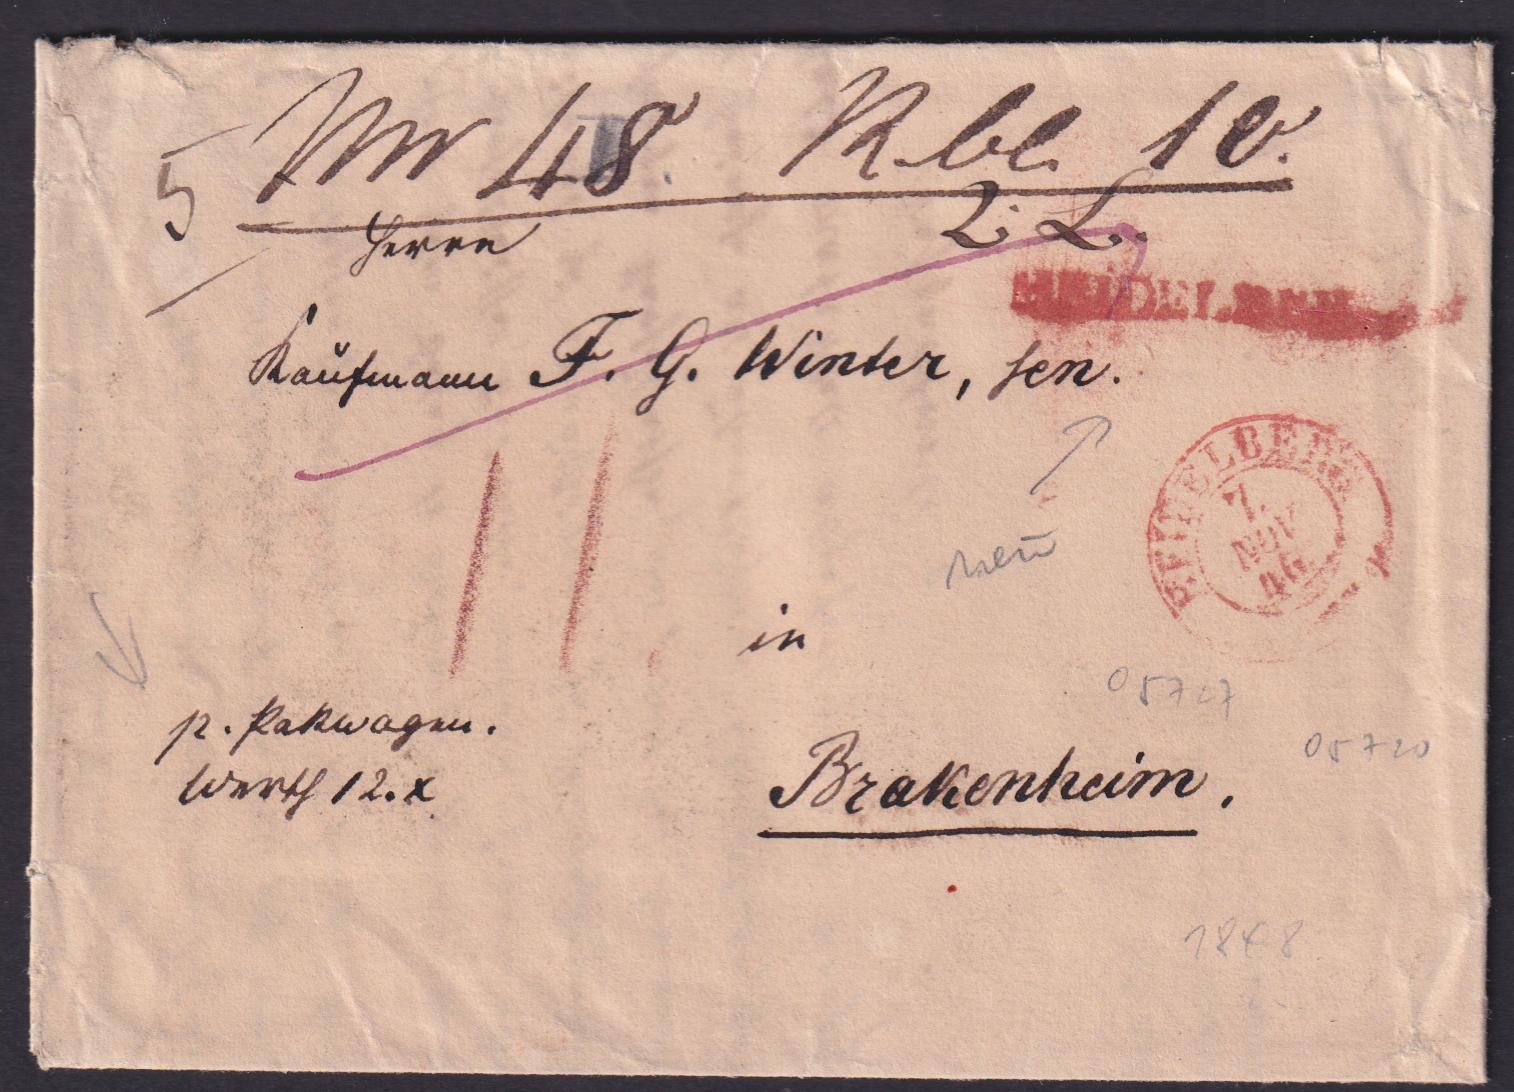 Nr 48. R. bl. 10.
5
2. L.
Herrn
HEIDELBERG
Kaufmann F. G. Winter, sen.
HEIDELBERG
7.
NOV
46
11.
neu
in
05727
p. Pakwagen.
05720
Werth 12. x
Brakenheim.
1848